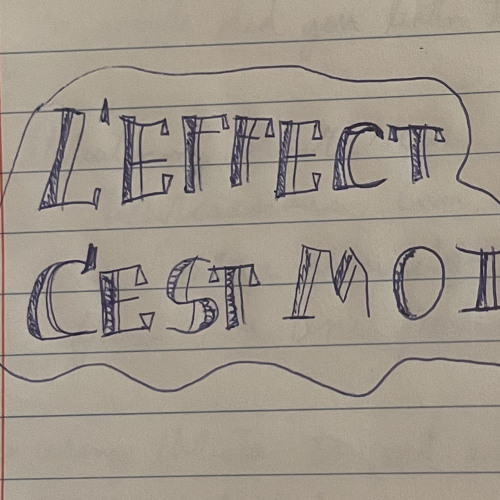 L'EFFECT
C'EST MOI